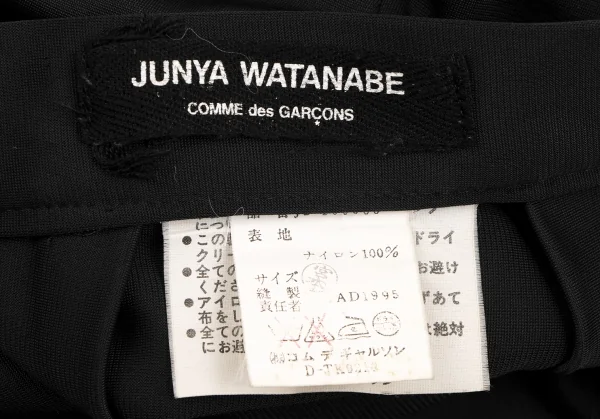 JUNYA WATANABE
COMME des GARÇONS
表 地
ナイロン100%
サイズ
縫 製
責任者
AD1995
㈱コム デ ギャルソン
● この
ドライ
クリー
● 全ての
お避け
くださ
● アイロ
ずあて
布をし
● 全ての
は絶対
にお避